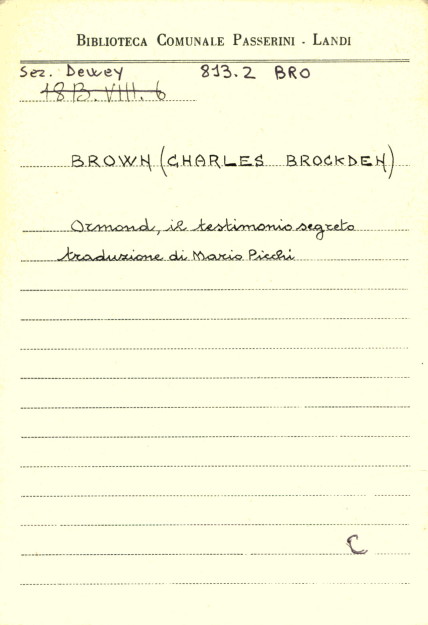 BIBLIOTECA COMUNALE PASSERINI - LANDI
Sez. Dewey 813.2 BRO
18 B. VIII. 6
BROWN (CHARLES BROCKDEN)
Ormond, il testimonio segreto
traduzione di Mario Picchi
C